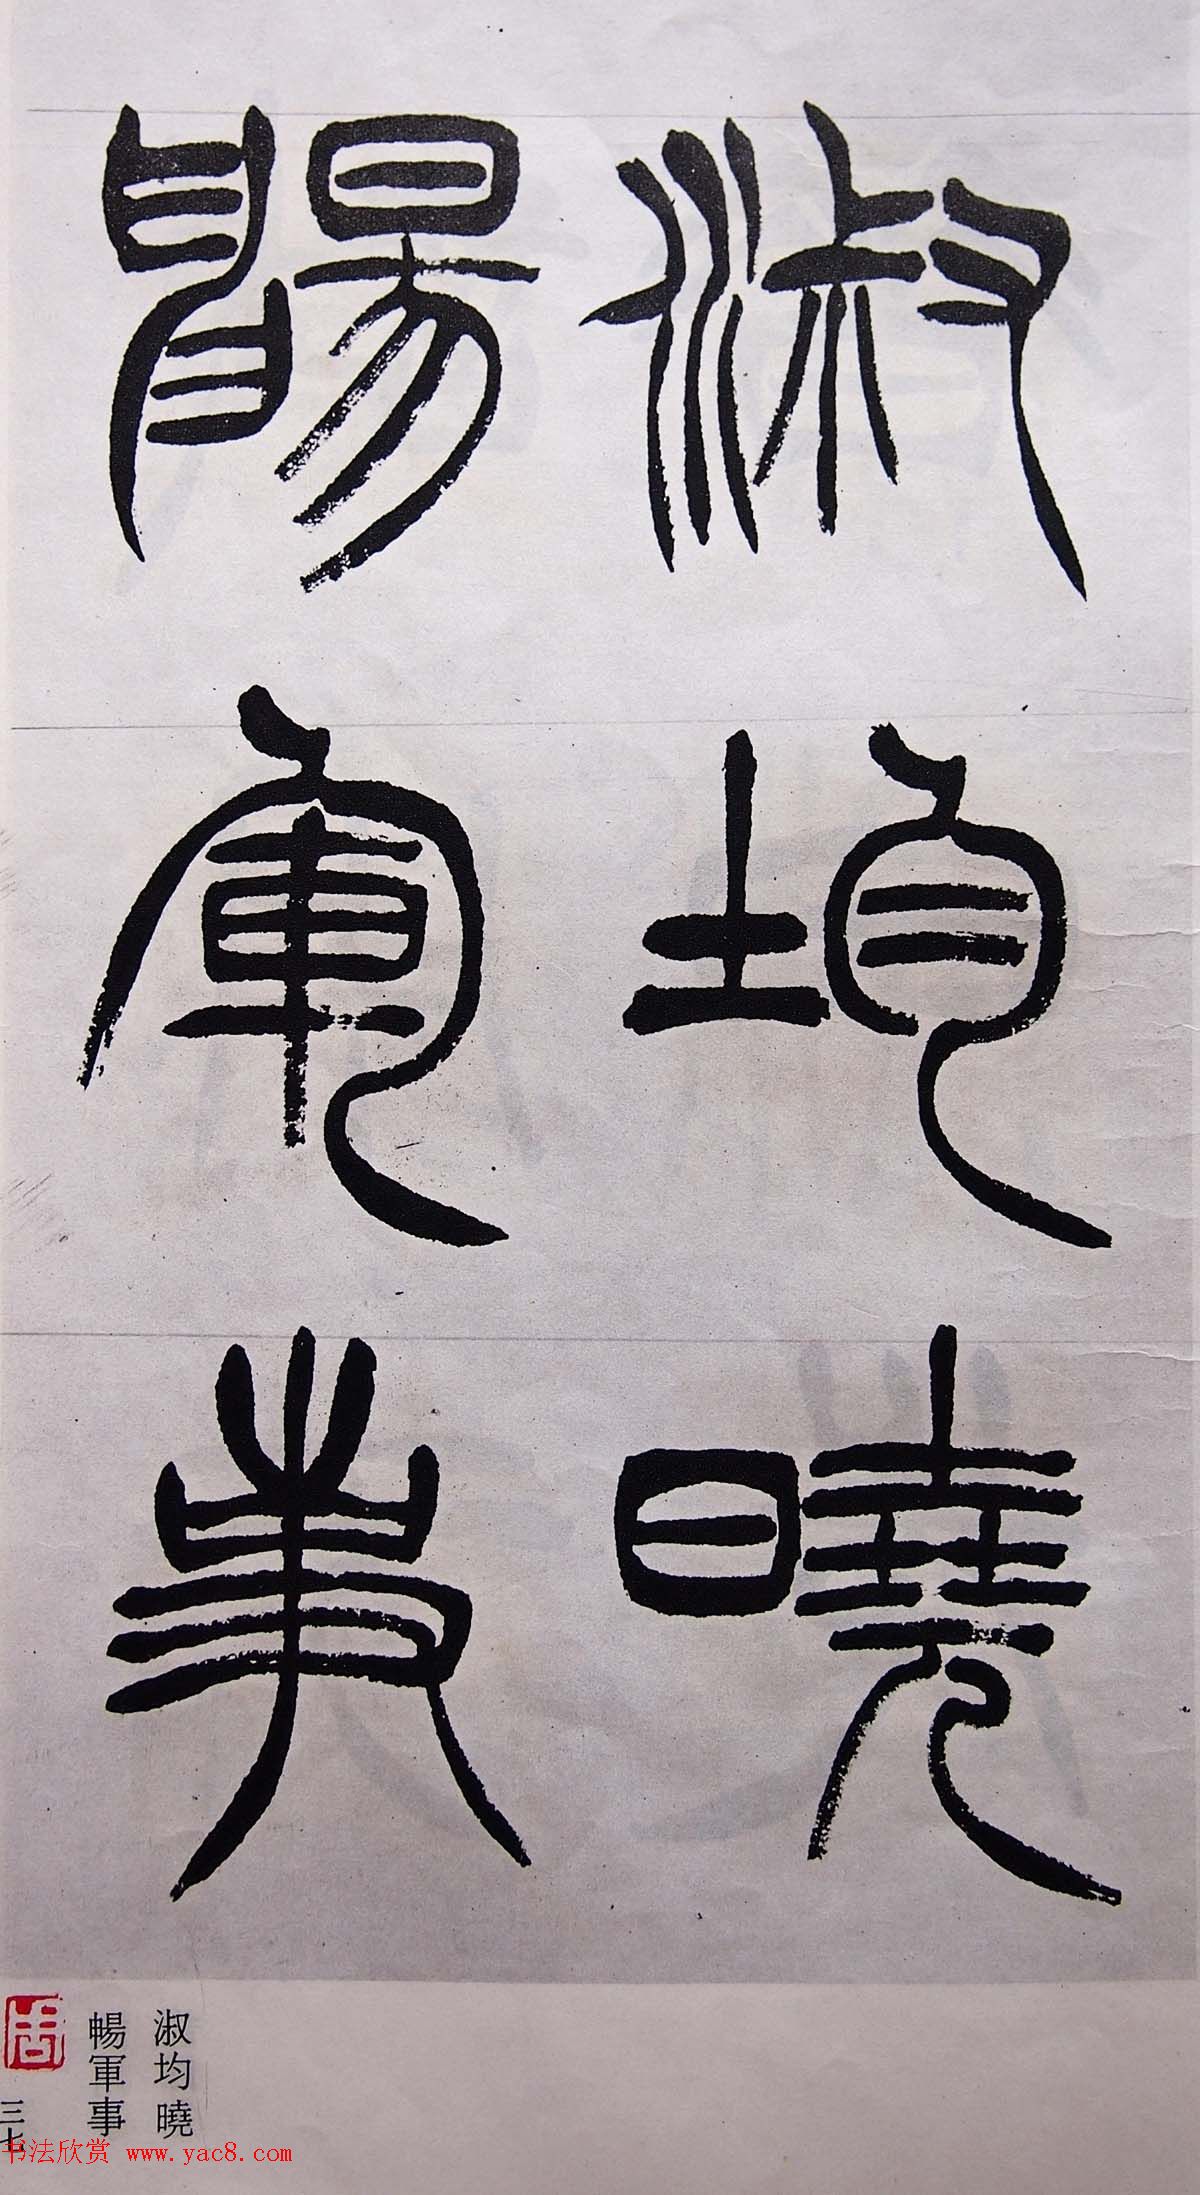 淑均曉
暢軍事
淑均曉
暢軍事
三七
书法欣赏 www.yac8.com